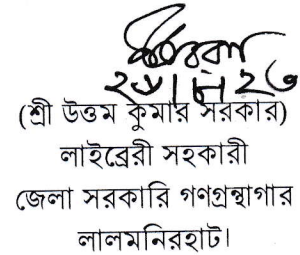 (শ্রী উত্তম কুমার সরকার)
লাইব্রেরী সহকারী
জেলা সরকারি গণগ্রন্থাগার
লালমনিরহাট।